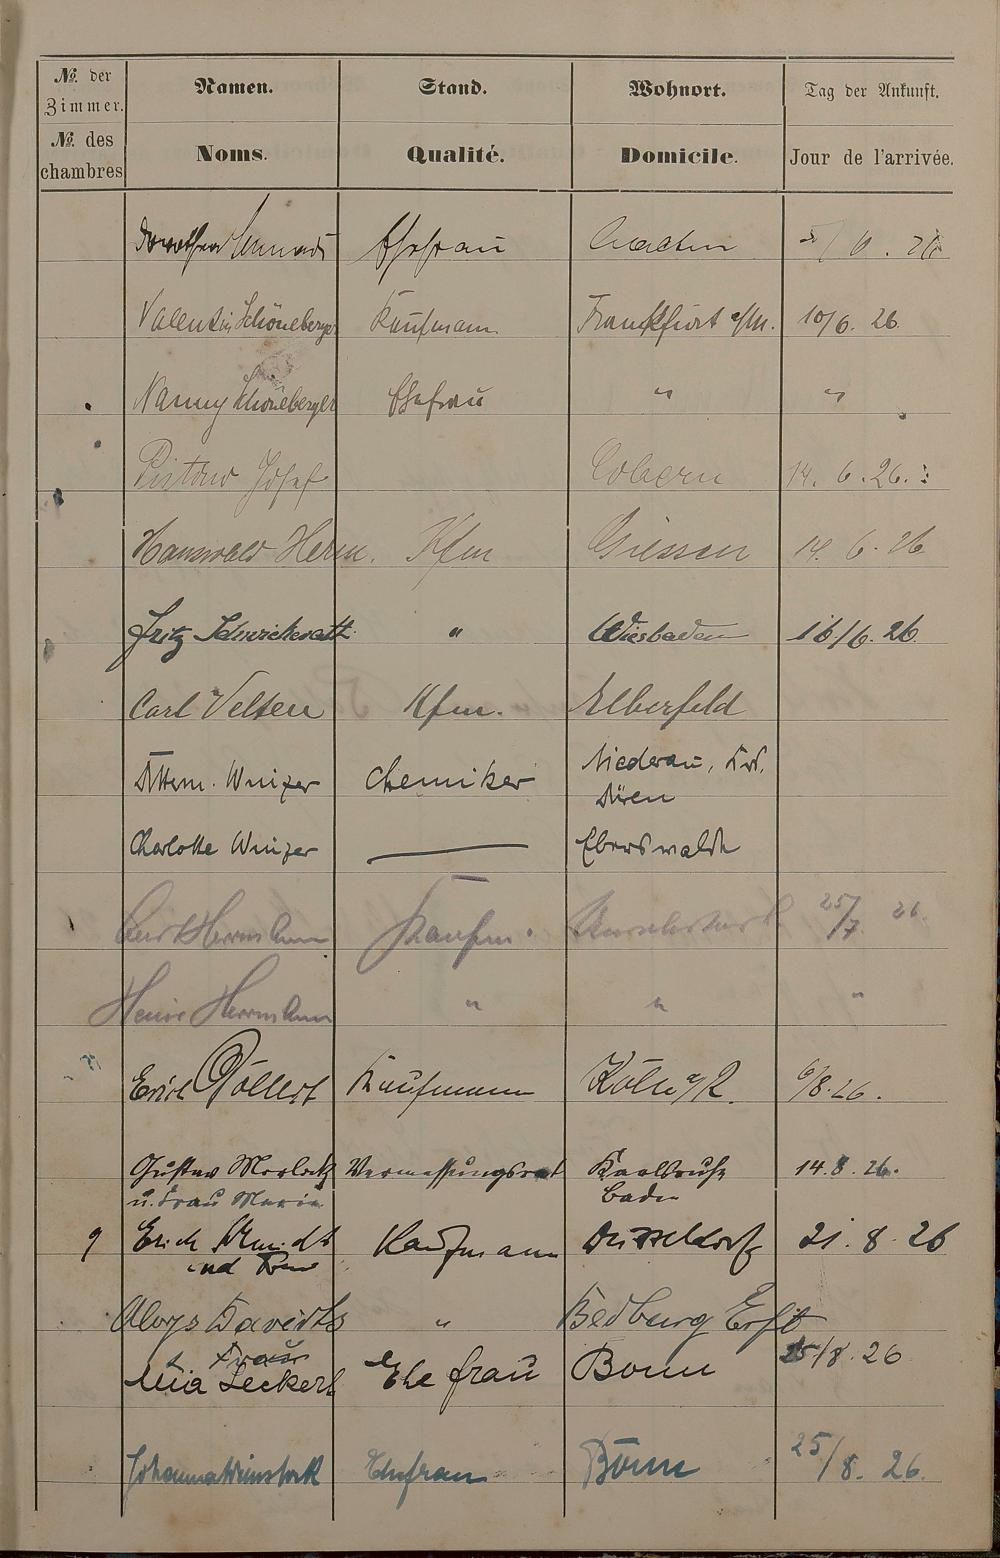 №. der Zimmer. Namen. Stand. Wohnort. Tag der Ankunft.
№. des chambres Noms. Qualité. Domicile. Jour de l'arrivée.
Dorothea Ehefrau Aachen 5/6. 26.
Valentin Schöneberger Kaufmann Frankfurt a/M. 10/6. 26.
Nanny Schöneberger Ehefrau " "
Josef Cobern 14. 6. 26.
Hanswald Herm. Kfm Giessen 14. 6. 26
Fritz Schwickerath " Wiesbaden 16/6. 26.
Carl Velten Kfm. Elberfeld
Winzer Chemiker Niederau, Krs.
Düren
Charlotte Winzer — Eberswalde
Herrmann Kaufm. 25/7. 26.
Herrmann " " "
Erich Göllert Kaufmann Köln a/R. 6/8. 26.
Gustav Morlock Vermessungsrat Karlsruhe 14. 8. 26.
u. Frau Maria Baden
9 Erich Schmidt Kaufmann Düsseldorf 21. 8. 26
und Frau
Aloys Davidts " Bedburg Erft
Frau
Mia Leckert Ehefrau Bonn 25/8. 26
Johanna Weinstock Ehefrau Bonn 25/8. 26.